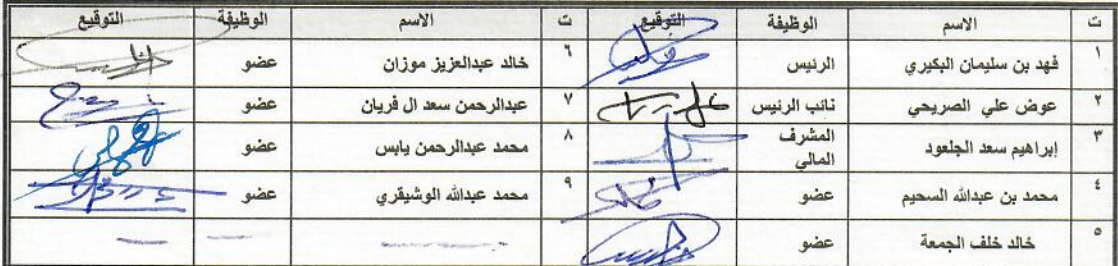 ت الاسم الوظيفة التوقيع ت الاسم الوظيفة التوقيع
١ فهد بن سليمان البكيري الرئيس ٦ خالد عبدالعزيز موزان عضو
٢ عوض علي الصريحي نائب الرئيس ٧ عبدالرحمن سعد ال فريان عضو
٣ إبراهيم سعد الجلعود المشرف المالي ٨ محمد عبدالرحمن يابس عضو
٤ محمد بن عبدالله السحيم عضو ٩ محمد عبدالله الوشيقري عضو
٥ خالد خلف الجمعة عضو